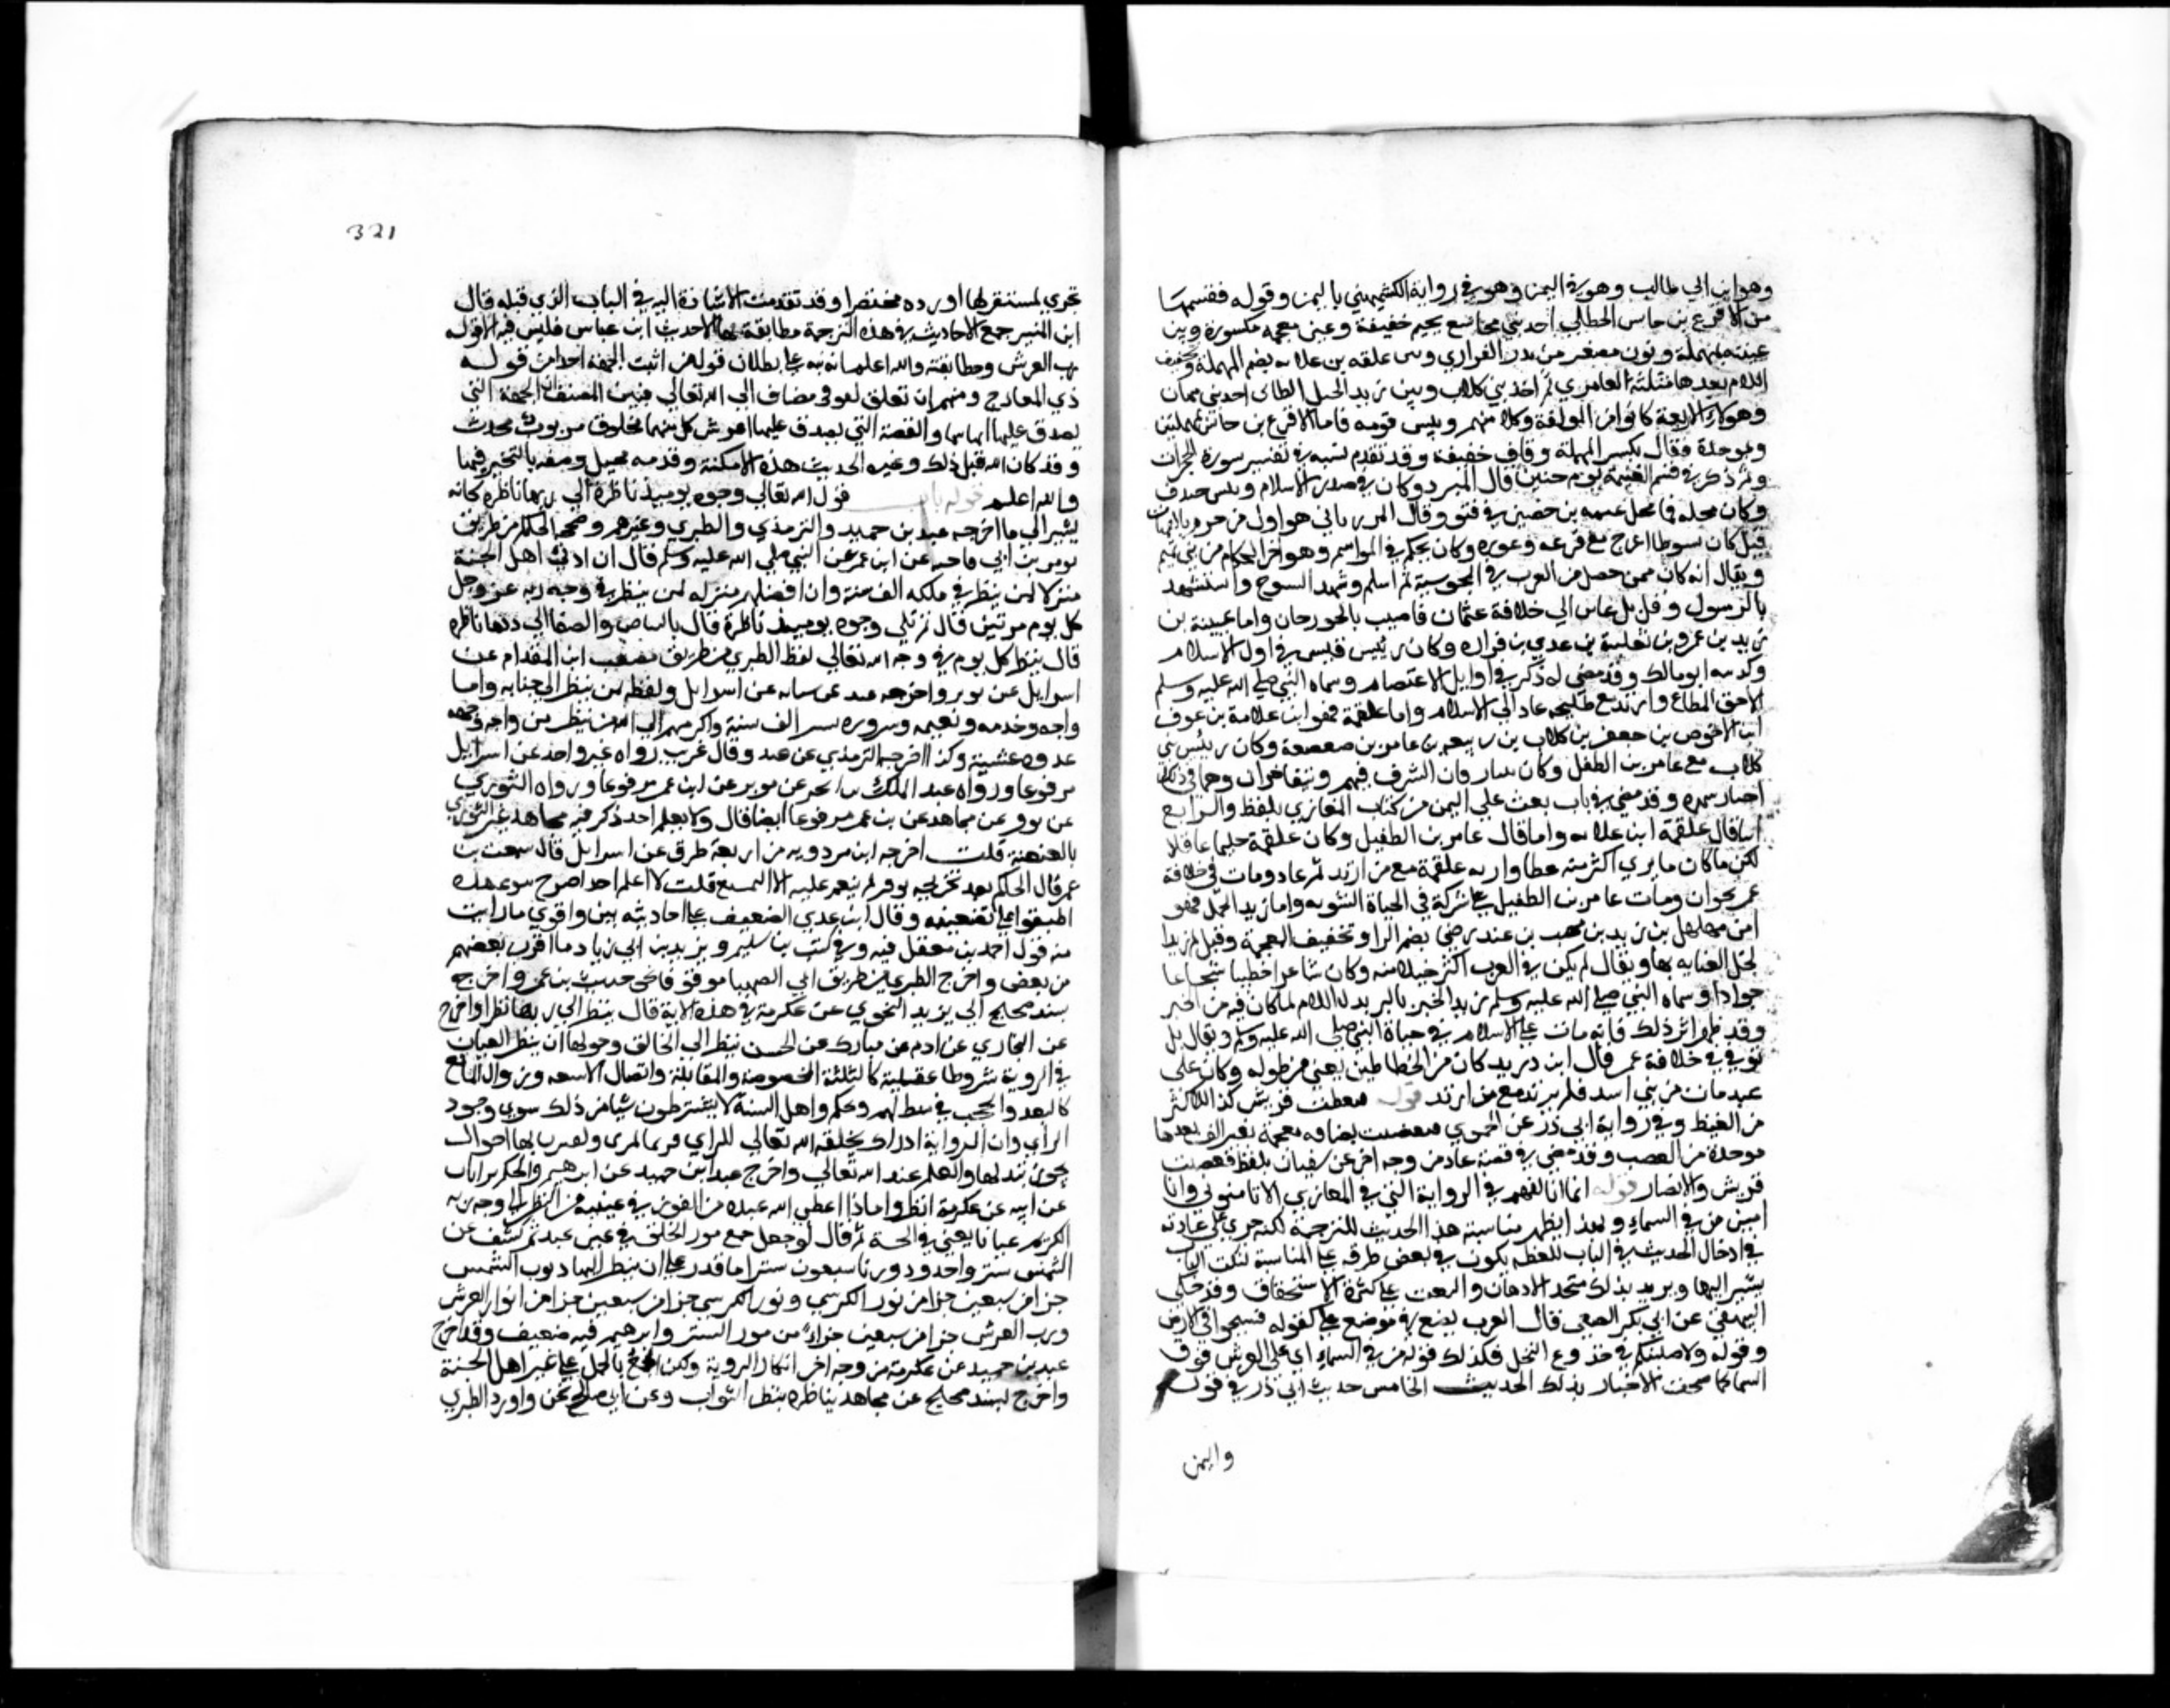 وهو ابن ابي طالب وهو في اليمن وهو في رواية الكشميهني باليمن وقوله فقسمها
من الاقرع بن حابس الحنظلي احد بني مجاشع بجيم خفيفة وعين معجمة مكسورة وبين
عيينة بمهملة ونون مصغر من بدر الفزاري وبين علقمة بن علاثه بضم المهملة وتخفيف
اللام بعدها مثلثة العامري ثم احد بني كلاب وبين زيد الخيل الطائي احد بني نبهان
وهولاء الاربعة كانوا من المولفة وكلا منهم رييس قومه فاما الاقرع بن حابس بمهملتين
وموحدة فقال بكسر المهملة وقاف خفيفة وقد تقدم نسبه في تفسير سورة الحجرات
وله ذكر في قسم الغنيمة يوم حنين قال المبرد وكان في صدر الاسلام رييس خندف
وكان محله فيها محل عيينة بن حصين في قيس وقال المرزباني هو اول من حرم
قيل كان سنوطا اعرج مع قرعه وعوره وكان يحكم في المواسم وهو اخر الحكام من بني تميم
ويقال انه كان ممن دخل من العرب في المجوسية ثم اسلم وشهد الفتوح واستشهد
باليرموك وقيل بل عاش الي خلافة عثمان فاصيب بالجوزجان واما عيينة بن
بدر بن عمرو بن ثعلبة بن عدي بن فزاره وكان رييس قيس في اول الاسلام
وكنيته ابو مالك وقد مضي له ذكر في اوايل الاعتصام وسماه النبي صلي الله عليه وسلم
الاحمق المطاع وارتد مع طليحه ثم عاد الي الاسلام واما علقمة فهو ابن علاثة بن عوف
ابن الاحوص بن جعفر بن كلاب بن ربيعه بن عامر بن صعصعة وكان رييس بني
كلاب مع عامر بن الطفل وكانا يتنازعان الشرف فيهم ويتفاخران ولهما في ذلك
اخبار شهيره وقد مضي في باب بعث علي اليمن من كتاب المغازي بلفظ والرابع
اما قال علقمة ابن علاثه واما قال عامر بن الطفيل وكان علقمة حليما عاقلا
لكن ما كان عامر اكثر منه عطا وارتد علقمة مع من ارتد ثم عاد ومات في خلافة
عمر بحوران ومات عامر بن الطفيل علي شركه في الحياة النبويه واما زيد الخيل فهو
ابن مهلهل بن زيد بن منهب بن عبد رضي بضم الرا وتخفيف المعجمة وقيل له زيد
الخيل لعنايه بها ويقال لم يكن في العرب اكثر خيلا منه وكان شاعرا خطيبا شجاعا
جوادا وسماه النبي صلي الله عليه وسلم زيد الخير بالرا بدل اللام لما كان فيه من الخير
وقد ظهر اثر ذلك فانه مات علي الاسلام في حياة النبي صلي الله عليه وسلم ويقال بل
توفي في خلافة عمر قال ابن دريد كان من الخطاطين يعني من طوله وكان علي
صدقات بني اسد فلم يرتد مع من ارتد قوله فغضبت قريش كذا للاكثر
من الغيظ وفي رواية ابي ذر عن الحموي فتغضبت بضاد معجمة بغير الف بعدها
موحدة من الغضب وقد مضي في قصة عاد من وجه اخر عن سفيان بلفظ فغضبت
قريش والانصار قوله انما اتالفهم في الرواية التي في المغازي الا تامنوني وانا
امين من في السماء وبهذا يظهر مناسبة هذا الحديث للترجمة لكنه جري علي عادته
في ادخال الحديث في الباب للفظة يكون في بعض طرقه هي المناسبة لذلك الباب
يشير اليها ويريد بذلك شحذ الاذهان والبعث علي كثرة الاستحضار وقد حكي
البيهقي عن ابي بكر الضبعي قال العرب يضع في موضع علي كقوله فسيحوا في الارض
وقوله ولاصلبنكم في جذوع النخل فكذلك قوله من في السماء اي علي العرش فوق
السما كما صحت الاخبار بذلك الحديث الخامس حديث ابي ذر في قوله
واليمن
321
تجري لمستقر لها اورده مختصرا وقد تقدمت الاشارة اليه في الباب الذي قبله قال
ابن المنير جمع الاحاديث في هذه الترجمة مطابقة لها الا حديث ابن عباس فليس فيه الا قوله
رب العرش ومطابقته والله اعلم انه نبه علي بطلان قول من اثبت الجهة اخذا من قوله
ذي المعارج وفهم ان تعلق الفوقي مضاف الي الله تعالي فبين المصنف ان الجهة التي
يصدق عليها انها سما والجهة التي يصدق عليها انها عرش كل منهما مخلوق مربوب محدث
وقد كان الله قبل ذلك وغيره فحدثت هذه الامكنة وقدمه يحيل وصفه بالتحيز فيها
والله اعلم قوله باب قول الله تعالي وجوه يوميذ ناظرة الي ربها ناظره كانه
يشير الي ما اخرجه عبد بن حميد والترمذي والطبري وغيرهم وصححه الحاكم من طريق
ثوير بن ابي فاخته عن ابن عمر عن النبي صلي الله عليه وسلم قال ان ادني اهل الجنة
منزلا لمن ينظر في ملكه الف سنة وان افضلهم منزله لمن ينظر في وجه ربه عز وجل
كل يوم مرتين قال ثم تلي وجوه يوميذ ناظرة قال بالبياض والصفا الي ربها ناظره
قال ينظر كل يوم في وجه الله تعالي لفظ الطبري من طريق مصعب ابن المقدام عن
اسرايل عن ثوير واخرجه عبد عن شبابه عن اسرايل ولفظه لمن ينظر الي جنانه وازواجه
واجه وخدمه ونعيمه وسرره مسيرة الف سنة واكرمهم علي الله من ينظر الي وجهه
غدوه وعشية وكذا اخرجه الترمذي عن عبد وقال غريب رواه غير واحد عن اسرايل
مرفوعا ورواه عبد الملك بن ابجر عن ثوير عن ابن عمر مرفوعا ورواه الثوري
عن ثوير عن مجاهد عن بن عمر مرفوعا ايضا قال ولا نعلم احدا ذكر فيه مجاهد غير الثوري
بالعنعنة قلت اخرجه ابن مردويه من اربعة طرق عن اسرايل قال سمعت بن
عمر قال الحاكم بعد تخريجه ثوير لم ينقم عليه الا التشيع قلت لا اعلم احدا صرح بتوثيقه
اطبقوا علي تضعيفه وقال ابن عدي الضعف علي احاديثه بين واقوي ما رايت
فيه قول احمد بن حنبل فيه وفي ليث بن سليم ويزيد بن ابي زياد ما اقرب بعضهم
من بعض واخرج الطبري من طريق ابي الصهبا موقوفا نحو حديث بن عمر واخرج
بسند صحيح الي يزيد النحوي عن عكرمة في هذه الاية قال ينظر الي ربها نظرا واخرج
عن البخاري عن ادم عن مبارك عن الحسن ينظر الي الخالق وحق لها ان ينظر
في الروية شروطا عقلية كالبنية المخصوصة والمقابلة واتصال الاشعه وزوال المانع
كالبعد والحجب في خبط لهم وحكم واهل السنة لا يشترطون شيا من ذلك سوي وجود
المراي وان الرواية ادراك يخلقه الله تعالي للراي فيري المري ولقرب بها احوال
يجوز تبدلها والعلم عند الله تعالي واخرج عبد ابن حميد عن ابرهيم بن الحكم بن ابان
عن ابيه عن عكرمة انظروا ماذا اعطي الله عبده من النور في عينيه من النظر الي وجه ربه
الكريم عيانا يعني في الجنة ثم قال لو جعل جميع نور الخلق في عيني عبد ثم كشف عن
الشمس ستر واحد ودونها سبعون سترا ما قدر علي ان ينظر اليها ونور الشمس
جزا من سبعين جزا من نور الكرسي ونور الكرسي جزا من سبعين جزا من انوار العرش
ونور العرش جزا من سبعين جزاء من نور الستر وابرهيم فيه ضعيف وقد اخرج
عبد بن حميد عن عكرمة من وجه اخر انكار الروية ويمكن الجمع بالحمل علي غير اهل الجنة
واخرج بسند صحيح عن مجاهد ناظره ينظر الثواب وعن ابي صالح نحوه واورد الطبري